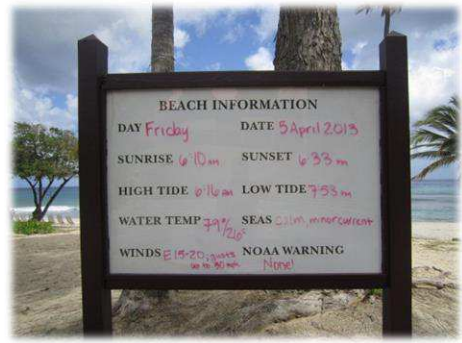 BEACH INFORMATION
DAY Friday DATE 5 April 2013
SUNRISE 6:10 am SUNSET 6:33 pm
HIGH TIDE 6:16 am LOW TIDE 7:53 pm
WATER TEMP 79°/26° SEAS calm, minor current
WINDS E 15-20, gusts NOAA WARNING
up to 30 mph None!